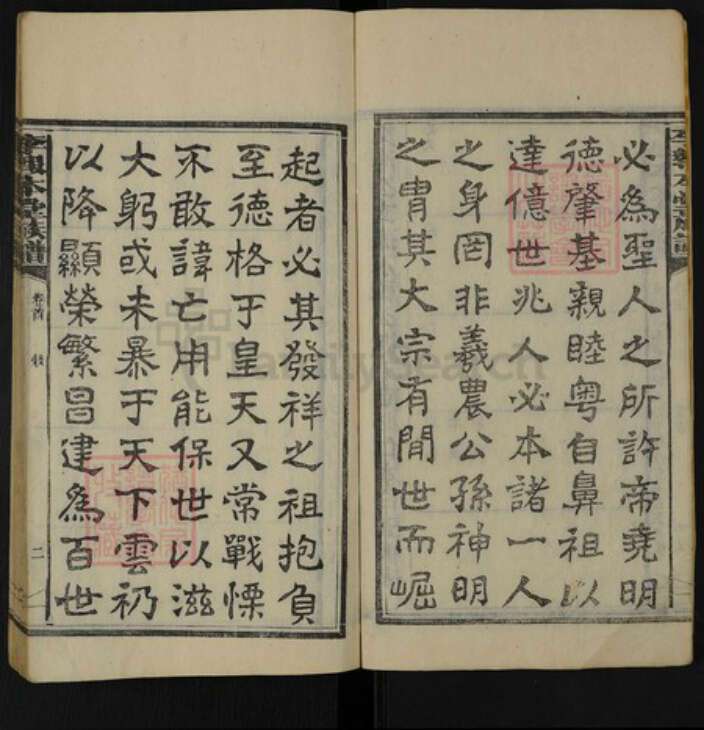 必為聖人之所許帝堯明
德肇基親睦粵自鼻祖以
達億世兆人必本諸一人
之身罔非羲農公孫神明
之胄其大宗有間世而崛
起者必其發祥之祖抱負
至德格于皇天又常戰慄
不敢諱亡用能保世以滋
大躬或未暴于天下雲礽
以降顯榮繁昌建為百世
卷首
二
FamilySearch